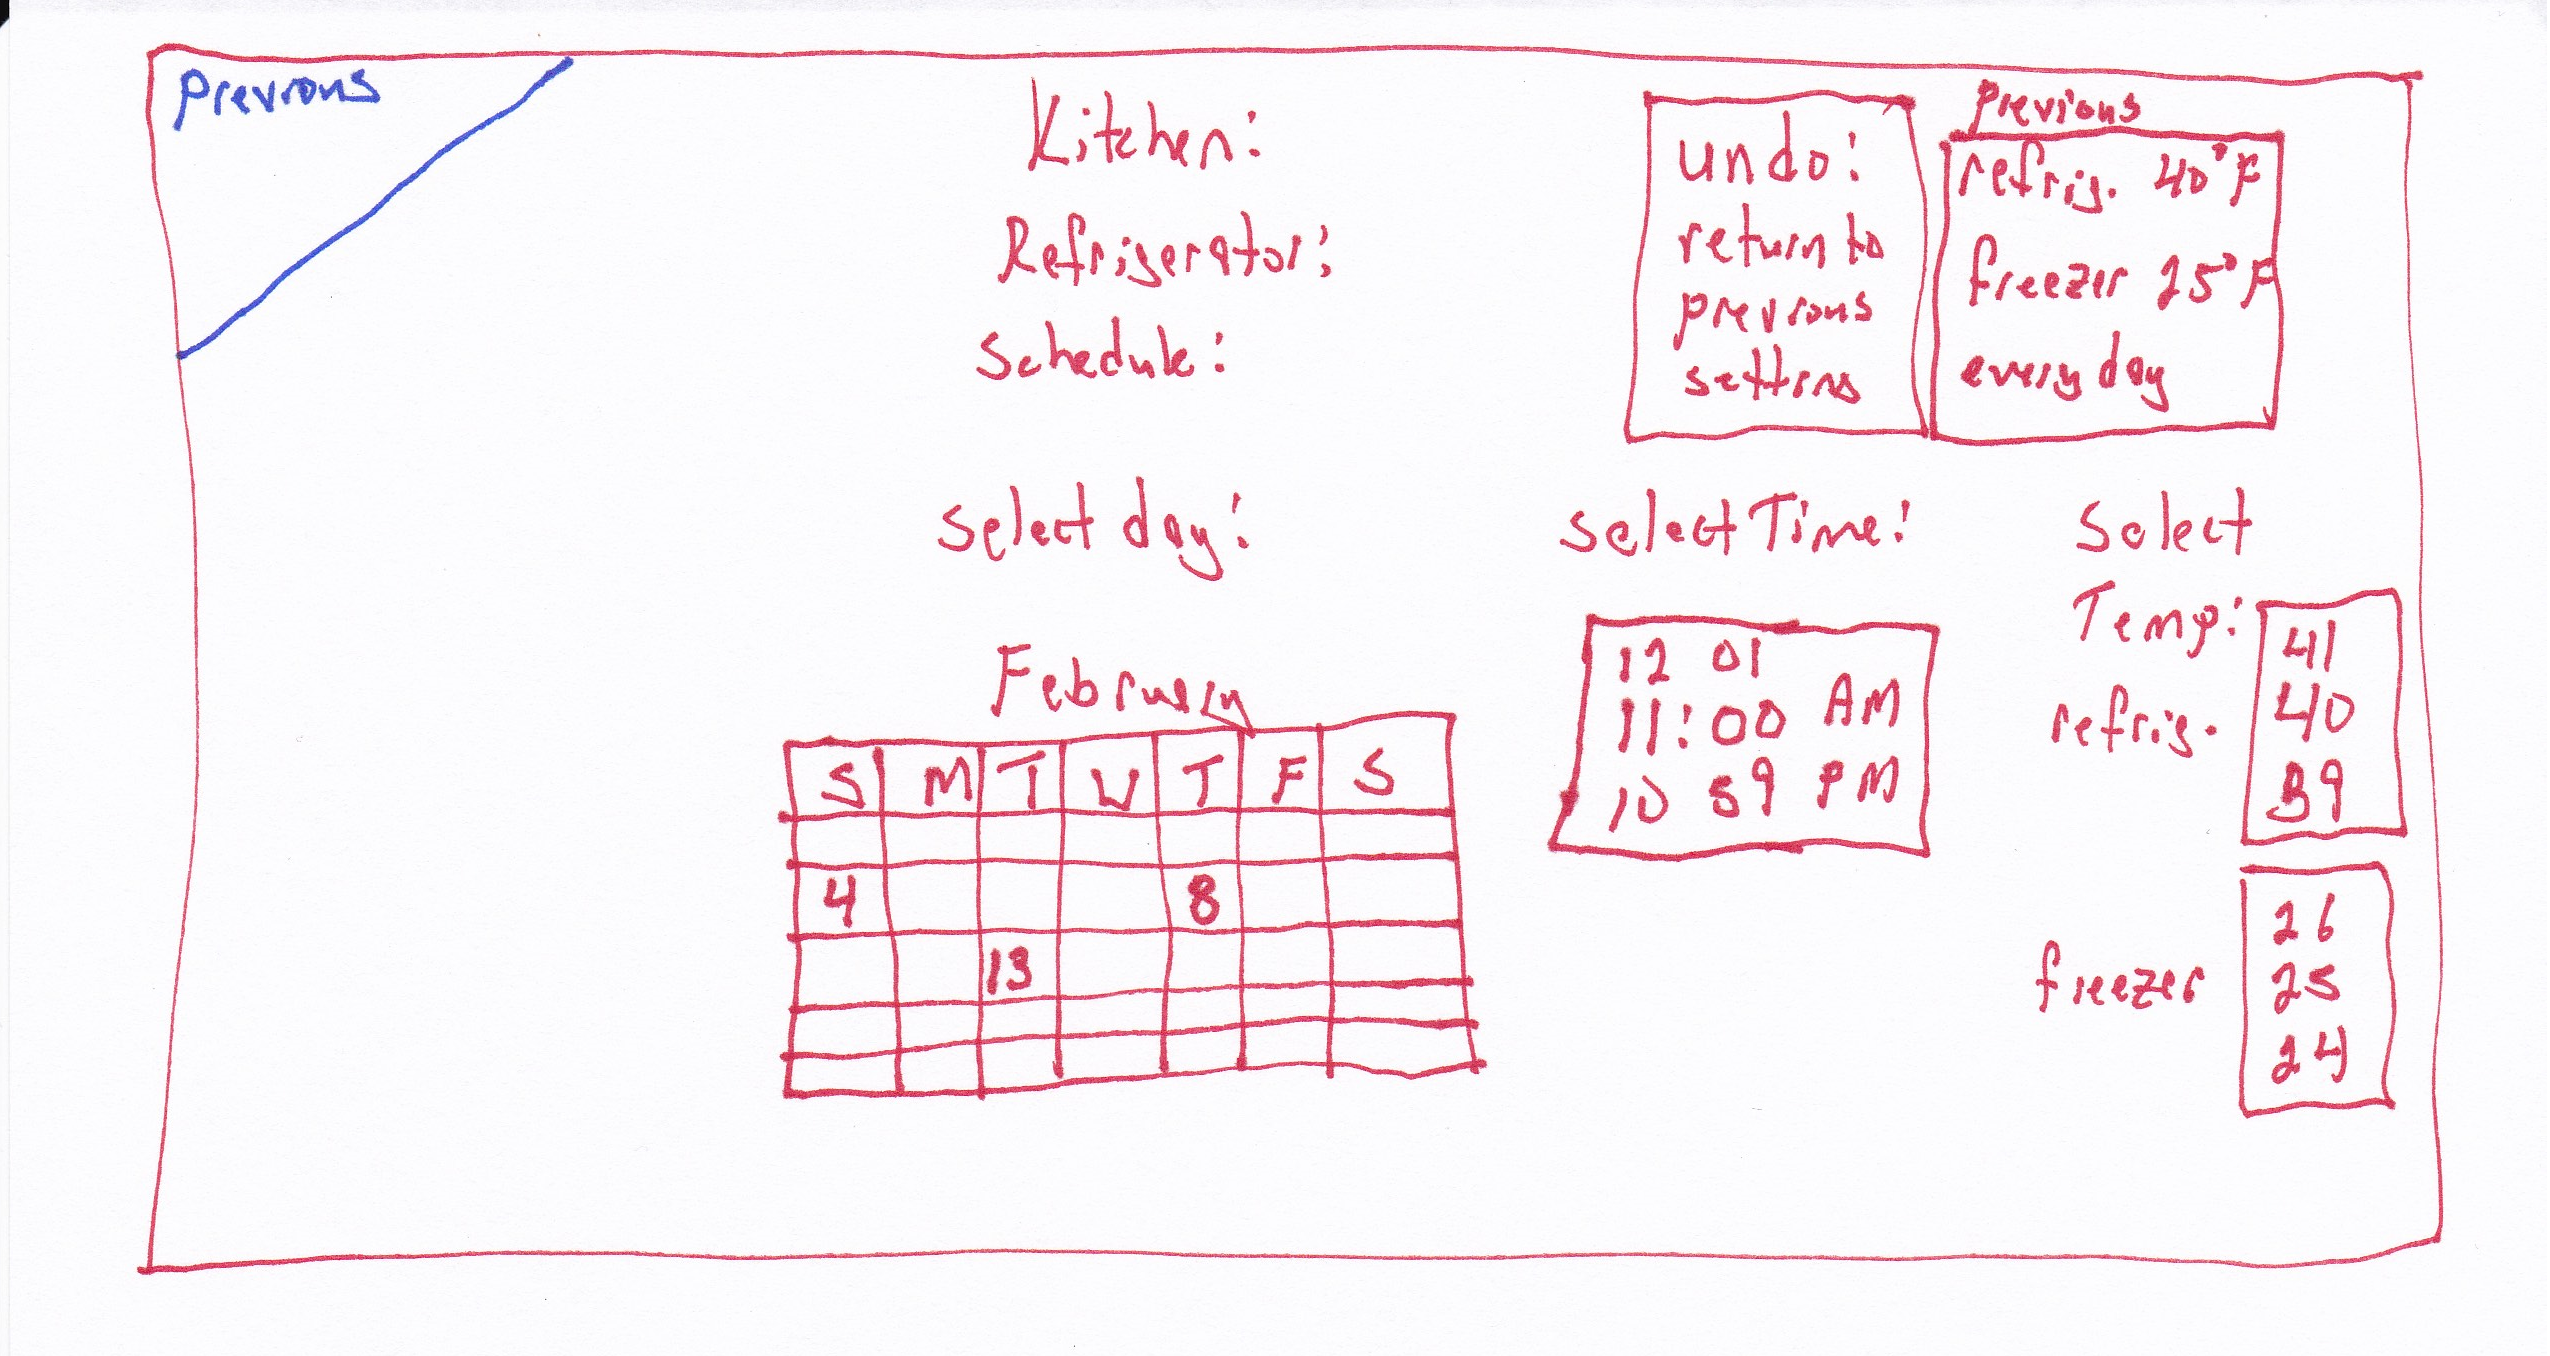 Previous
Kitchen:
Refrigerator:
Schedule:
undo:
return to
previous
setting
Previous
refrig. 40°F
freezer 25°F
every day
Select day:
February
S M T W T F S
4 8
13
Select Time:
12 01
11:00 AM
10 59 PM
Select
Temp:
refrig.
41
40
39
freezer
26
25
24